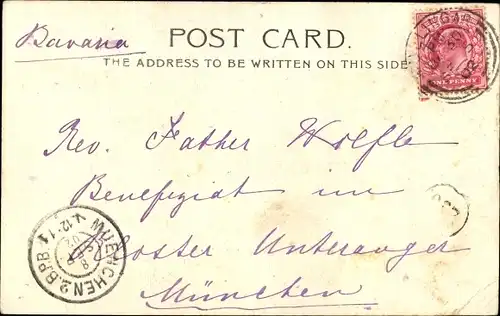 Bavaria
POST CARD.
THE ADDRESS TO BE WRITTEN ON THIS SIDE
ONE PENNY
Rev. Father Wölfle
Benefiziat im
Kloster Unteranger
München
MUENCHEN 2.B.P.B